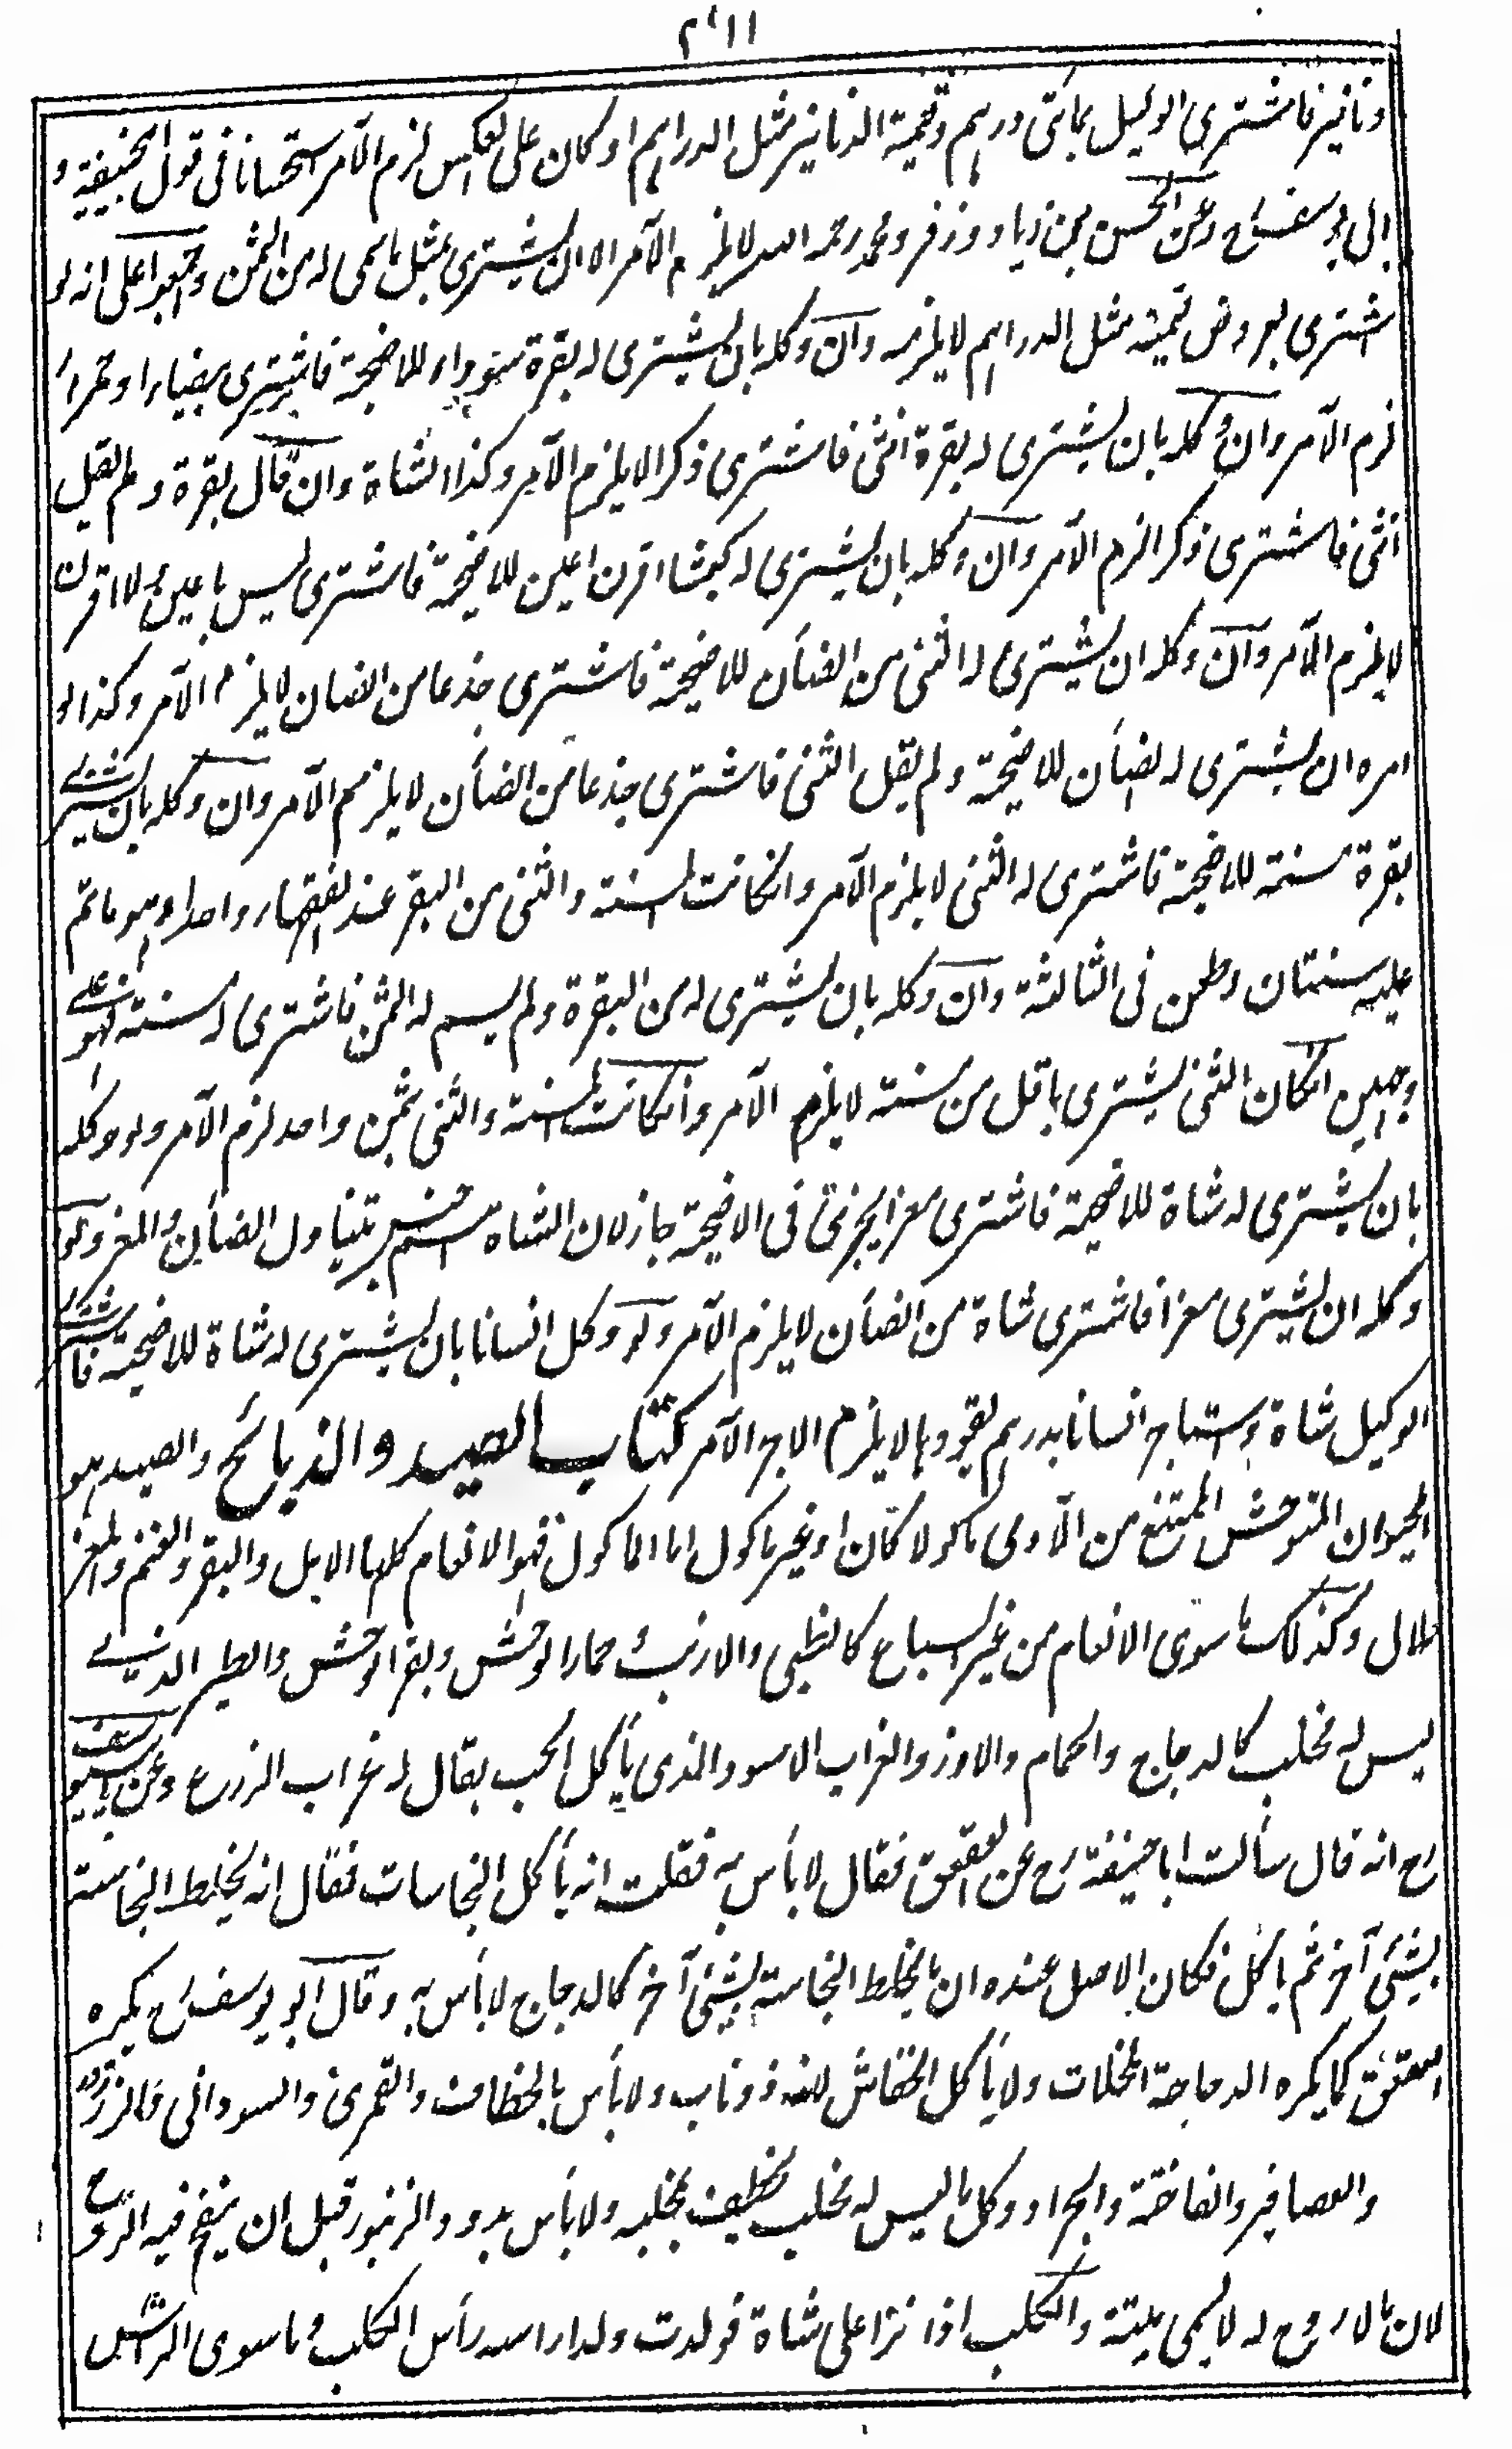 دنانير فاشترى الوكيل بمائتى درهم وقيمة الدنانير مثل الدراهم او كان على العكس لزم الآمر استحسانا فى قول ابيحنيفة و
ابى يوسف رح وعن الحسن بن زياد و زفر ومحمد رحمه الله لا يلزم الآمر الا ان يشترى بمثل ما سمى له من الثمن واجمعوا على انه لو
اشترى بعروض قيمته مثل الدراهم لا يلزمه وان وكله بان يشترى له بقرة سوداء للاضحية فاشترى بيضاء او حمراء
لزم الآمر وان وكله بان يشترى له بقرة انثى فاشترى ذكرا لا يلزم الآمر وكذا الشاة وان قال بقرة ولم يقل
انثى فاشترى ذكرا لزم الآمر وان وكله بان يشترى له كبشا اقرن اعين للاضحية فاشترى ليس باعين ولا اقرن
لا يلزم الآمر وان وكله ان يشترى له الثنى من الضأن للاضحية فاشترى جذعا من الضان لا يلزم الآمر وكذا لو
امره ان يشترى له الضأن للاضحية ولم يقل الثنى فاشترى جذعا من الضأن لا يلزم الآمر وان وكله بان يشترى
بقرة مسنة للاضحية فاشترى له الثنى لا يلزم الآمر وان كانت المسنة والثنى من البقر عند الفقهاء واحدا وهو ما تم
عليه سنتان وطعن فى الثالثة وان وكله بان يشترى له من البقرة ولم يسم له الثمن فاشترى له مسنة فهو على
وجهين ان كان الثنى يشترى باقل من مسنة لا يلزم الآمر وان كانت المسنة والثنى بثمن واحد لزم الآمر ولو وكله
بان يشترى له شاة للاضحية فاشترى معزا يجزئ فى الاضحية جاز لان الشاة اسم جنس يتناول الضأن والمعز ولو
وكله ان يشترى معزا فاشترى شاة من الضأن لا يلزم الآمر ولو وكل انسانا بان يشترى له شاة للاضحية فاشترى
الوكيل شاة واستاجر انسانا بدرهم يقودها لا يلزم الاجر الآمر كتاب الصيد والذبائح والصيد هو
الحيوان المتوحش الممتنع من الآدمى ماكولا كان او غير ماكول اما الماكول فهو الانعام كلها الابل والبقر والغنم والمعز
حلال وكذلك ما سوى الانعام من غير السباع كالظبى والارنب وحمار الوحش وبقر الوحش والطير الذى
ليس له مخلب كالدجاج والحمام والاوز والغراب الاسود الذى يأكل الحب يقال له غراب الزرع وعن ابى يوسف
رح انه قال سألت ابا حنيفة رح عن العقعق فقال لا بأس به فقلت انه يأكل النجاسات فقال انه يخلط النجاسة
بشئ آخر ثم ياكل فكان الاصل عنده ان ما يخلط النجاسة بشئ آخر كالدجاج لا بأس به وقال ابو يوسف رح يكره
العقعق كما يكره الدجاجة المخلات ولا يأكل الخفاش لانه ذو ناب ولا بأس بالخطاف والقمرى والسودانى والزرزور
والعصافير والفاختة والجراد وكل ما ليس له مخلب يخطف بمخلبه ولا بأس بدود الزنبور قبل ان ينفخ فيه الروح
لان ما لا روح له لا يسمى ميتة والكلب اذا نزا على شاة فولدت ولدا راسه رأس الكلب وما سوى الرأس